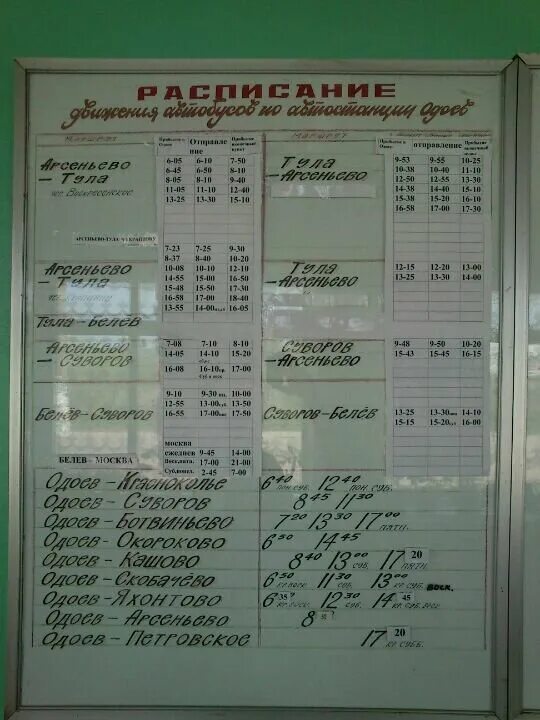 РАСПИСАНИЕ
движения автобусов по автостанции Одоев
МАРШРУТ
Прибытие в Одоев Отправление Прибытие конечный пункт
Арсеньево – Тула
чер. Воскресенское
6-05 6-10 7-50
6-45 6-50 8-10
8-05 8-10 9-40
11-05 11-10 12-40
13-25 13-30 15-10
АРСЕНЬЕВО-ТУЛА
7-23 7-25 9-30
8-37 8-40 10-20
Арсеньево – Тула
10-08 10-10 12-10
14-55 15-00 16-50
15-48 15-50 17-30
16-58 17-00 18-40
Тула – Белёв
13-55 14-00 16-05
Арсеньево – Суворов
7-08 7-10 8-10
14-05 14-10 15-20
16-08 16-10пр. 17-00
Суб и вск
Белёв – Суворов
9-10 9-30 10-00
12-55 13-00 13-50
16-55 17-00 17-50
БЕЛЕВ - МОСКВА
москва
ежеднев 9-45 14-00
Воск.пятн. 17-00 21-00
Суб.понел. 2-45 7-00
МАРШРУТ
Прибытие в Одоев отправление Прибытие конечный
Тула – Арсеньево
9-53 9-55 10-25
10-38 10-40 11-10
12-50 12-55 13-30
14-38 14-40 15-10
15-38 15-20 16-10
16-58 17-00 17-30
Тула – Арсеньево
12-15 12-20 13-00
13-25 13-30 14-00
Суворов – Арсеньево
9-48 9-50 10-20
15-43 15-45 16-15
Суворов – Белёв
13-25 13-30 14-10
15-15 15-20 16-00
Одоев – Красноколье 6 40 пон. суб. 12 40 пон. суб.
Одоев – Суворов 8 45 11 30
Одоев – Ботвиньево 7 20 13 30 17 00 пятн.
Одоев – Окороково 6 50 14 45
Одоев – Кашово 8 40 13 00 суб. 17 20 пятн.
Одоев – Скобачево 6 50 кр.воск. 11 30 суб. 13 00 кр. суб. воск.
Одоев – Яхонтово 6 35 кр. воск. 12 30 суб. 14 45 кр. суб. воск
Одоев – Арсеньево 8
Одоев – Петровское 17 20 кр. субб.